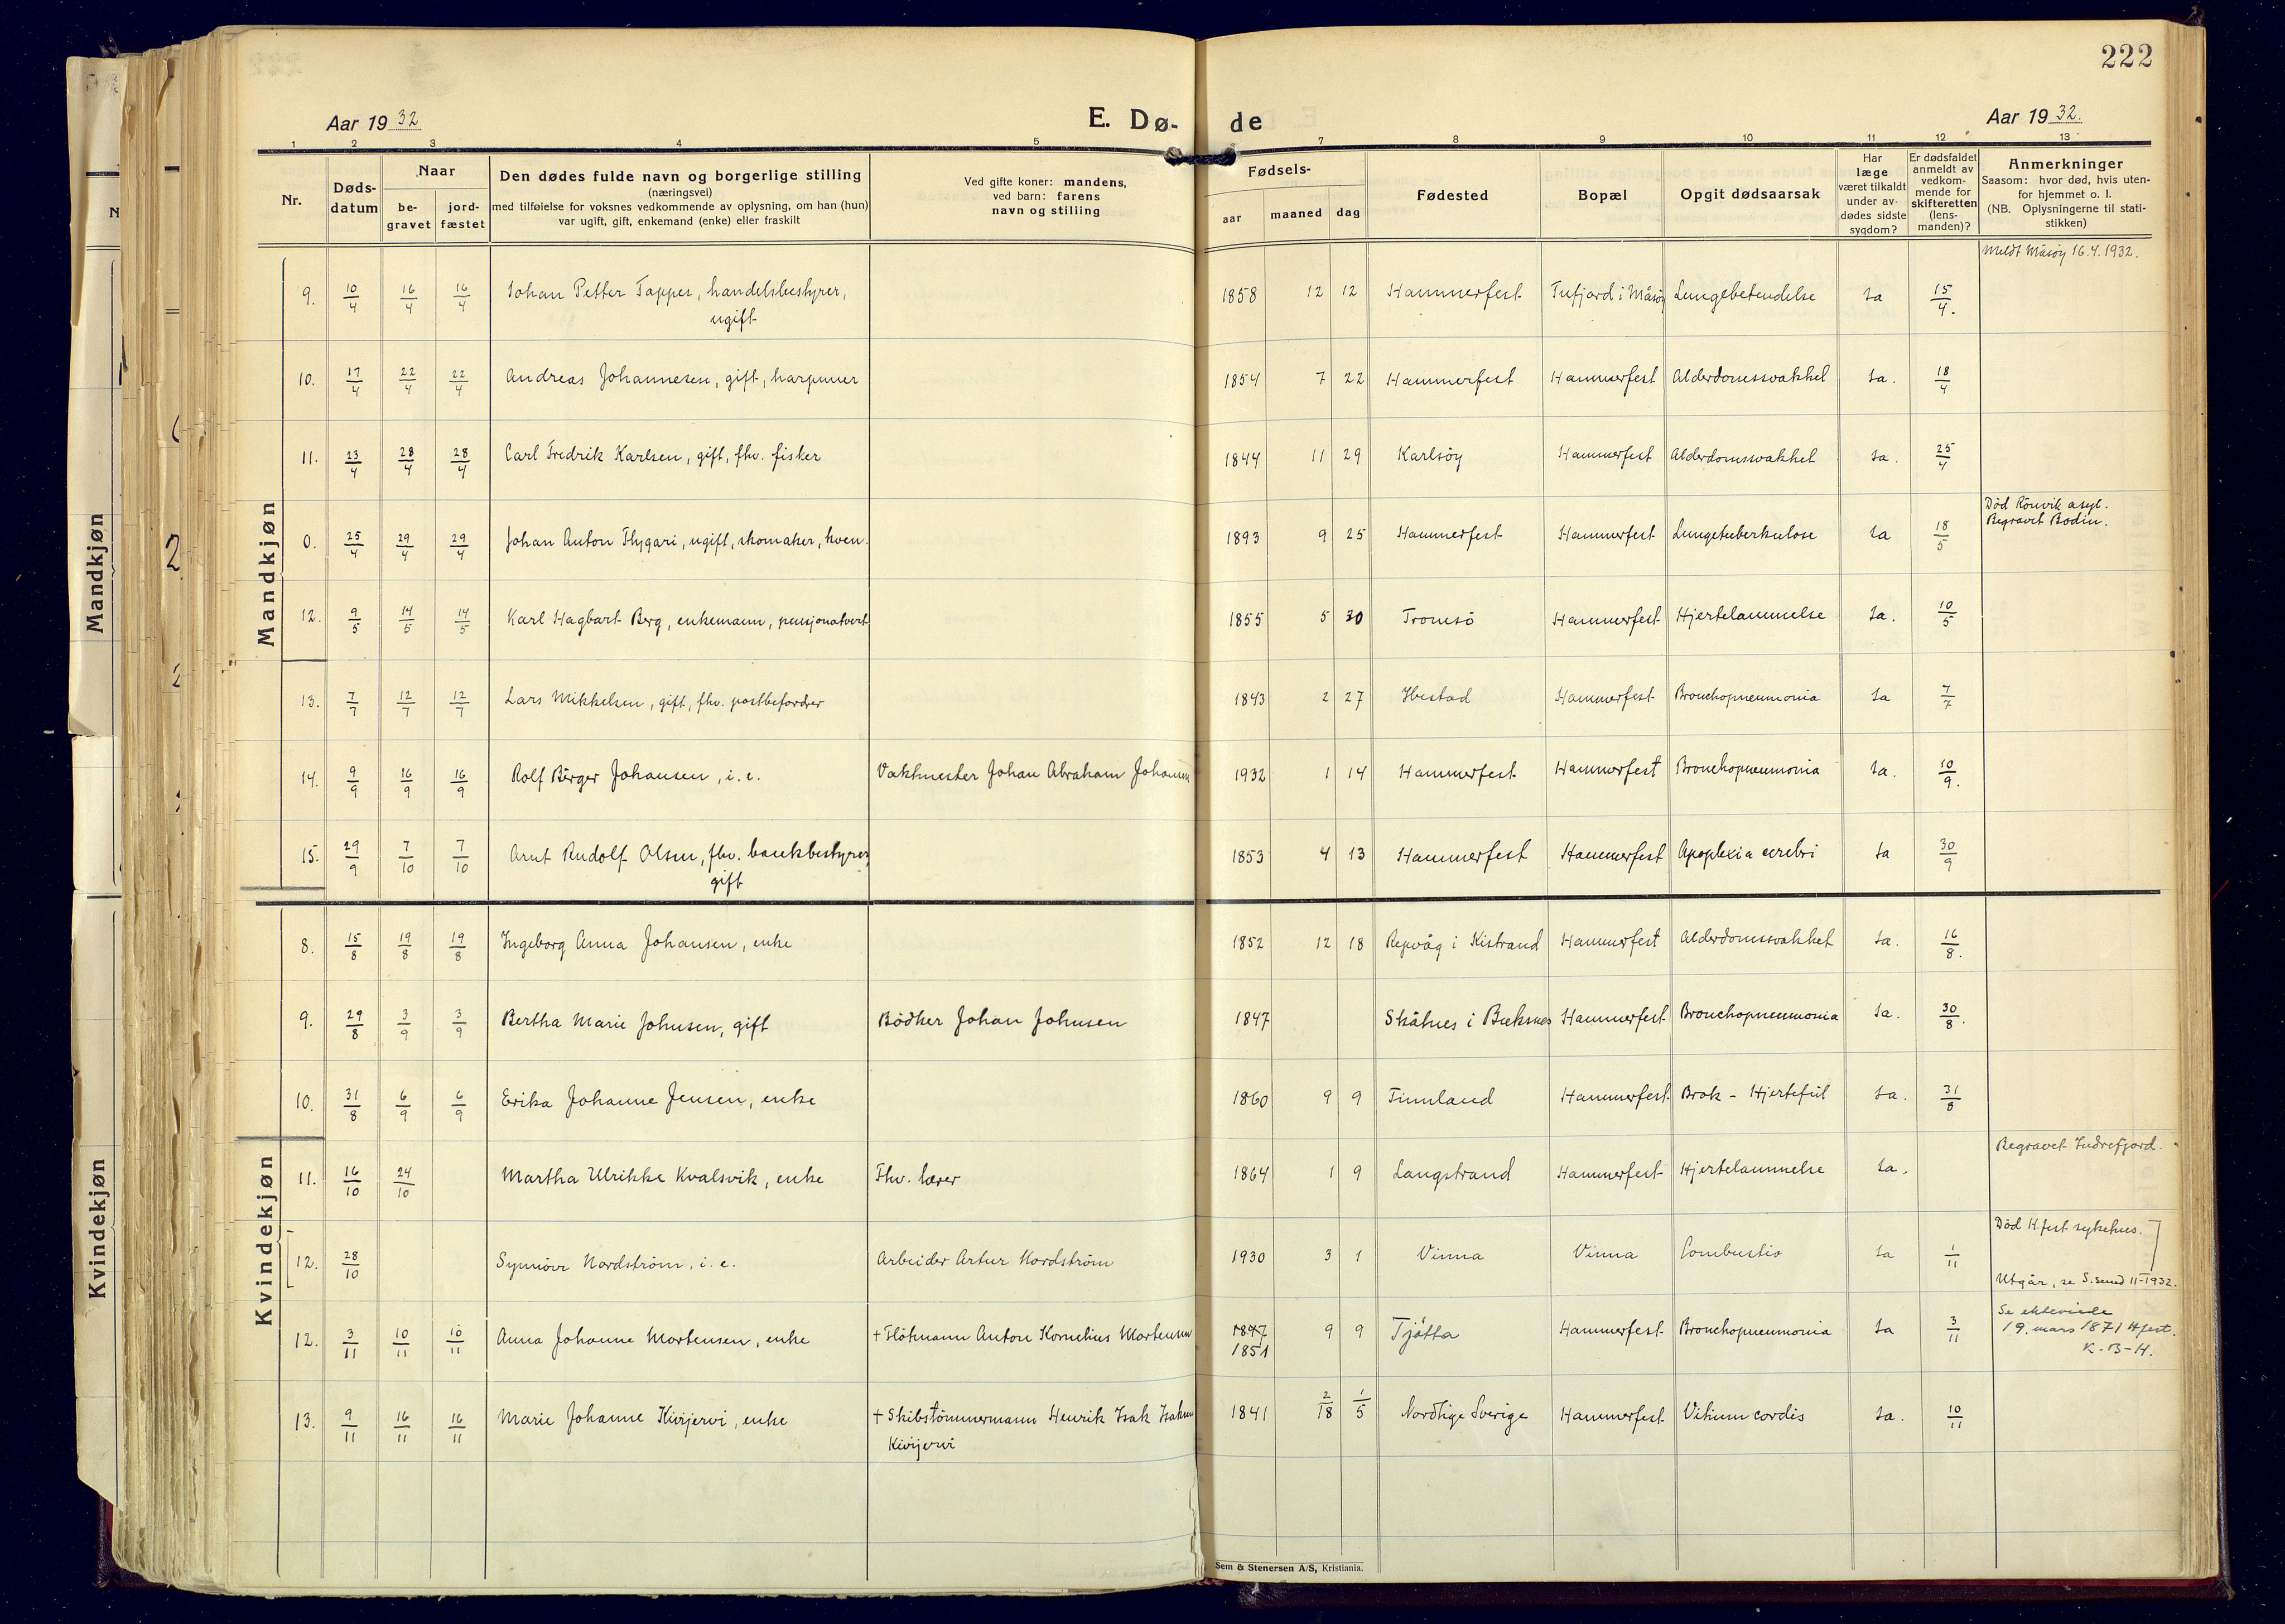 222
Aar 1932
E. Dø-
de
Aar 1932.
1 2 3 4 5 7 8 9 10 11 12 13
Nr.
Døds-
datum
Naar
be-
gravet
jord-
fæstet
Den dødes fulde navn og borgerlige stilling
(næringsvei)
med tilføielse for voksnes vedkommende av oplysning, om han (hun)
var ugift, gift, enkemand (enke) eller fraskilt
Ved gifte koner: mandens,
ved barn: farens
navn og stilling
Fødsels-
aar maaned dag
Fødested
Bopæl
Opgit dødsaarsak
Har
læge
været tilkaldt
under av-
dødes sidste
sygdom?
Er dødsfaldet
anmeldt av
vedkom-
mende for
skifteretten
(lens-
manden)?
Anmerkninger
Saasom: hvor død, hvis uten-
for hjemmet o. l.
(NB. Oplysningerne til stati-
stikken)
Mandkjøn
Mandkjøn
Meldt Måsøy 16.4.1932.
9. 10/4 16/4 16/4 Johan Petter Tapper, handelsbestyrer, 1858 12 12 Hammerfest Tufjord i Måsøy Lungebetendelse Ja 15/4.
ugift
10. 17/4 22/4 22/4 Andreas Johannesen, gift, harpuner 1854 7 22 Hammerfest Hammerfest Alderdomssvakhet Ja. 18/4
11. 23/4 28/4 28/4 Carl Fredrik Karlsen, gift, fhv. fisker 1844 11 29 Karlsöy Hammerfest Alderdomssvakhet Ja. 25/4
Död Rönvik asyl.
Begravet Bodin.
0. 25/4 29/4 29/4 Johan Anton Thygari, ugift, skomaker, kven. 1893 9 25 Hammerfest Hammerfest Lungetuberkulose Ja 18/5
12. 9/5 14/5 14/5 Karl Hagbart Berg, enkemann, pensjonatvert 1855 5 30 Tromsö Hammerfest Hjertelammelse Ja. 10/5
13. 7/7 12/7 12/7 Lars Mikkelsen, gift, fhv. postbefordrer 1843 2 27 Ibestad Hammerfest Bronchopneumonia Ja 7/7
14. 9/9 16/9 16/9 Rolf Birger Johansen, i. e. Vaktmester Johan Abraham Johansen 1932 1 14 Hammerfest Hammerfest Bronchopneumonia Ja. 10/9.
15. 29/9 7/10 7/10 Arnt Rudolf Olsen, fhv. bankbestyrer 1853 4 13 Hammerfest Hammerfest Apoplexia cerebri Ja 30/9
gift
Kvindekjøn
Kvindekjøn
8. 15/8 19/8 19/8 Ingeborg Anna Johansen, enke 1852 12 18 Repvåg i Kistrand Hammerfest Alderdomssvakhet Ja. 16/8.
9. 29/8 3/9 3/9 Bertha Marie Johnsen, gift Bödker Johan Johnsen 1847 Skånes i Buksnes Hammerfest Bronchopneumonia Ja. 30/8.
10. 31/8 6/9 6/9 Erika Johanne Jensen, enke 1860 9 9 Finnland Hammerfest Brok - Hjertefeil Ja. 31/8
Begravet Indrefjord.
11. 16/10 24/10 Martha Ulrikke Kvalsvik, enke Fhv. lærer 1864 1 9 Langstrand Hammerfest Hjertelammelse Ja.
Död H.fest sykehus.
12. 28/10 Synnöve Nordström, i. e. Arbeider Artur Nordström 1930 3 1 Vinna Vinna Combustio Ja 1/11
Utgår, se S.sund 11-1932.
Se ekteviede
19. mars 1871 H.fest.
K-B-H.
12. 3/11 10/11 10/11 Anna Johanne Mortensen, enke + Flåtmann Anton Kornelius Mortensen 1847 9 9 Tjötta Hammerfest Bronchopneumonia Ja 3/11
1851
13. 9/11 16/11 16/11 Marie Johanne Kivijervi, enke + Skibstömmermann Henrik Isak Isaksen 1841 2/18 1/5 Nordlige Sverige Hammerfest Vitium cordis Ja. 10/11
Kivijervi
Sem & Stenersen A/S, Kristiania.